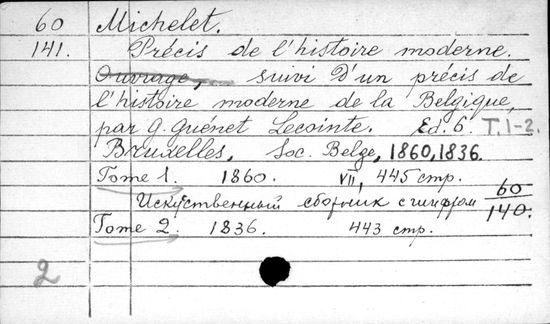 60 Michelet.
141. Précis de l'histoire moderne.
Ouvrage, suivi d'un précis de
l'histoire moderne de la Belgique,
par G. Guénet Lecointe. Ed. 6. T. 1-2.
Bruxelles, Soc. Belge, 1860, 1836.
Tome 1. 1860. VII, 445 стр.
Искуственный сборник с шифром 60/140.
Tome 2. 1836. 443 стр.
2